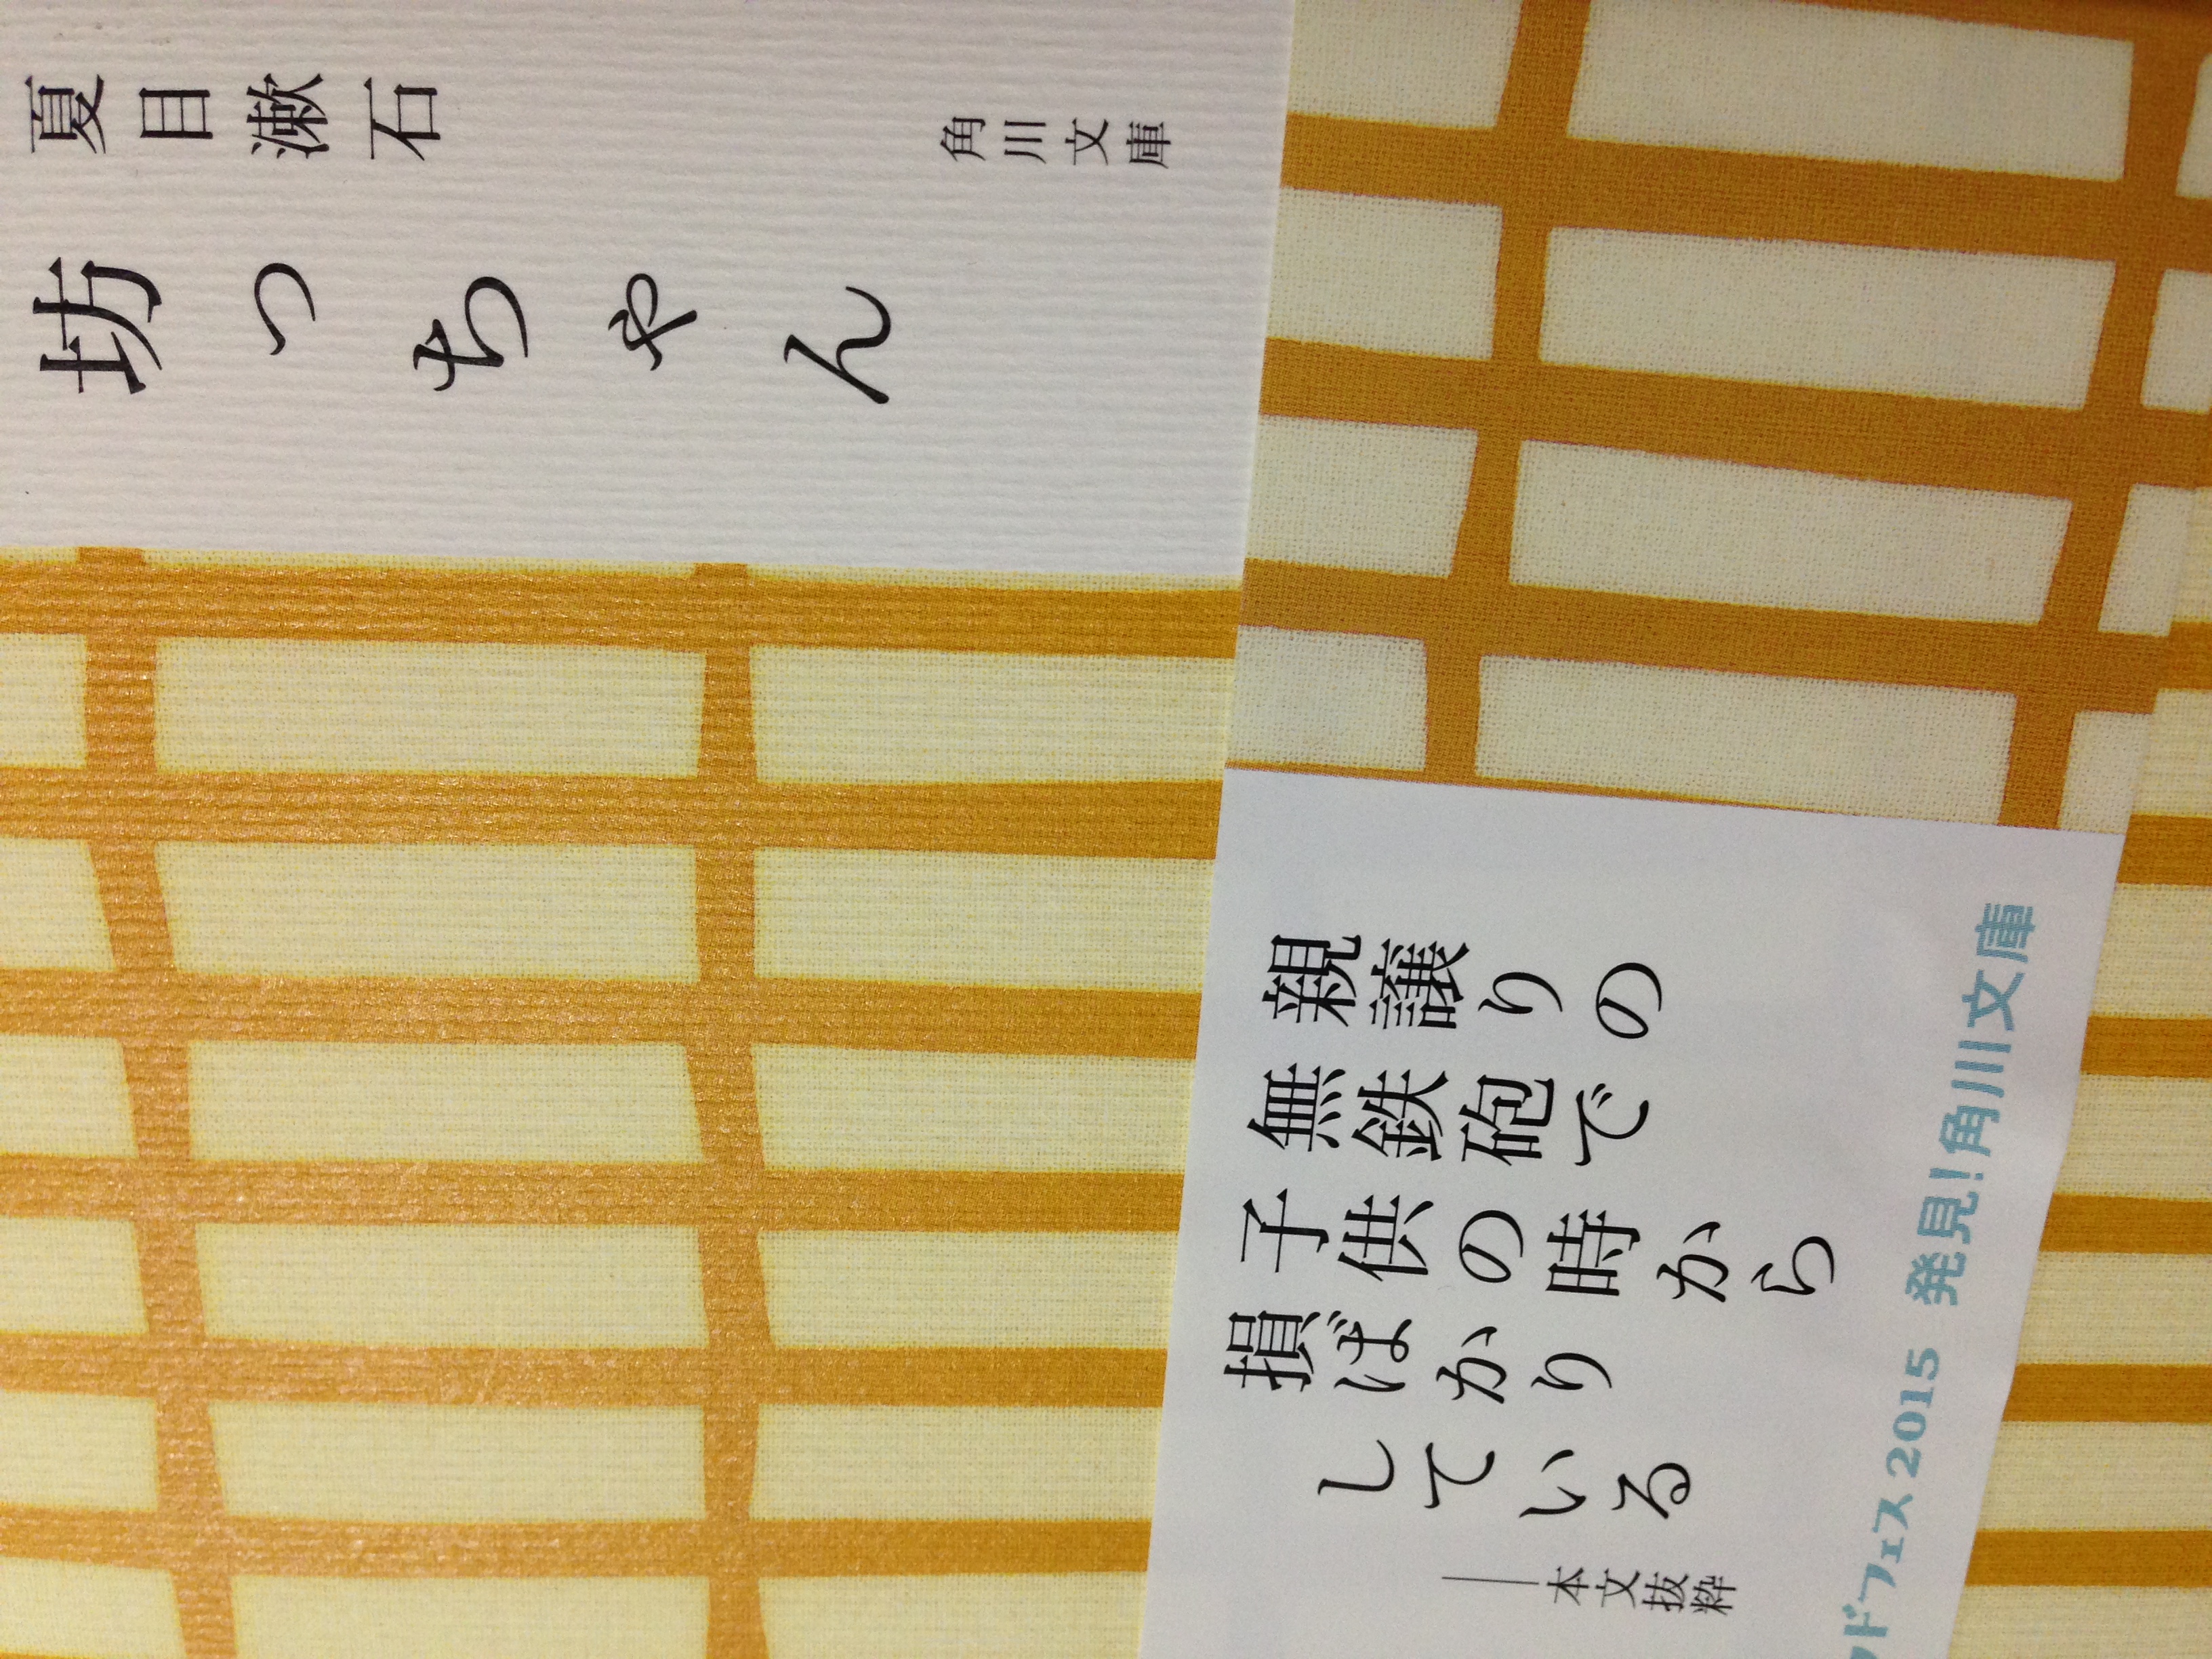 夏目漱石
坊っちゃん
角川文庫
親譲りの
無鉄砲で
子供の時から
損ばかり
している
──本文抜粋
ドフェス 2015 発見!角川文庫